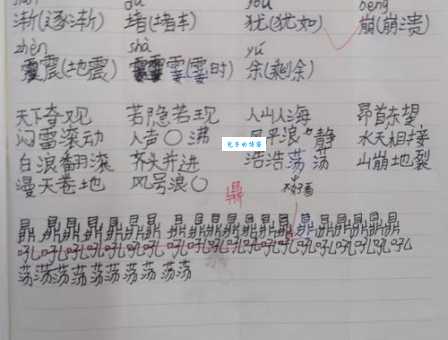 渐(逐渐) 堵(堵车) 犹(犹如) 崩(崩溃)
zhèn shà yú
震(地震) 霎(霎时) 余(剩余)
天下奇观 若隐若现 人山人海 昂首东望
闷雷滚动 人声〇沸 风平浪静 水天相接
白浪翻滚 齐头并进 浩浩荡荡 山崩地裂
漫天卷地 风号浪〇
鼎
鼎鼎鼎鼎鼎鼎鼎鼎鼎鼎鼎鼎鼎鼎鼎鼎鼎鼎鼎
吼吼吼吼吼吼吼吼吼吼吼吼吼吼吼吼吼吼吼吼
荡荡荡荡荡荡荡荡荡